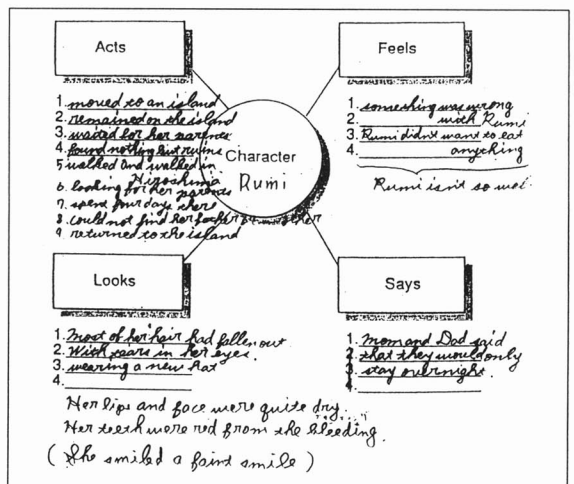 Acts
1. moved to an island
2. remained on the island
3. waited for her parents
4. found nothing but ruins
5 walked and walked in
Hiroshima
6. looking for her parents
7. spent four days there
8. could not find her father or mother
9. returned to the island
Feels
1. something was wrong
2. with Rumi
3. Rumi didn't want to eat
4. anything
Rumi isn't so well
Character
Rumi
Looks
1. Most of her hair had fallen out
2. With tears in her eyes.
3. wearing a new hat
4.
Her lips and face were quite dry.
Her teeth were red from the bleeding.
(She smiled a faint smile)
Says
1. Mom and Dad said
2. that they would only
3. stay overnight.
4.